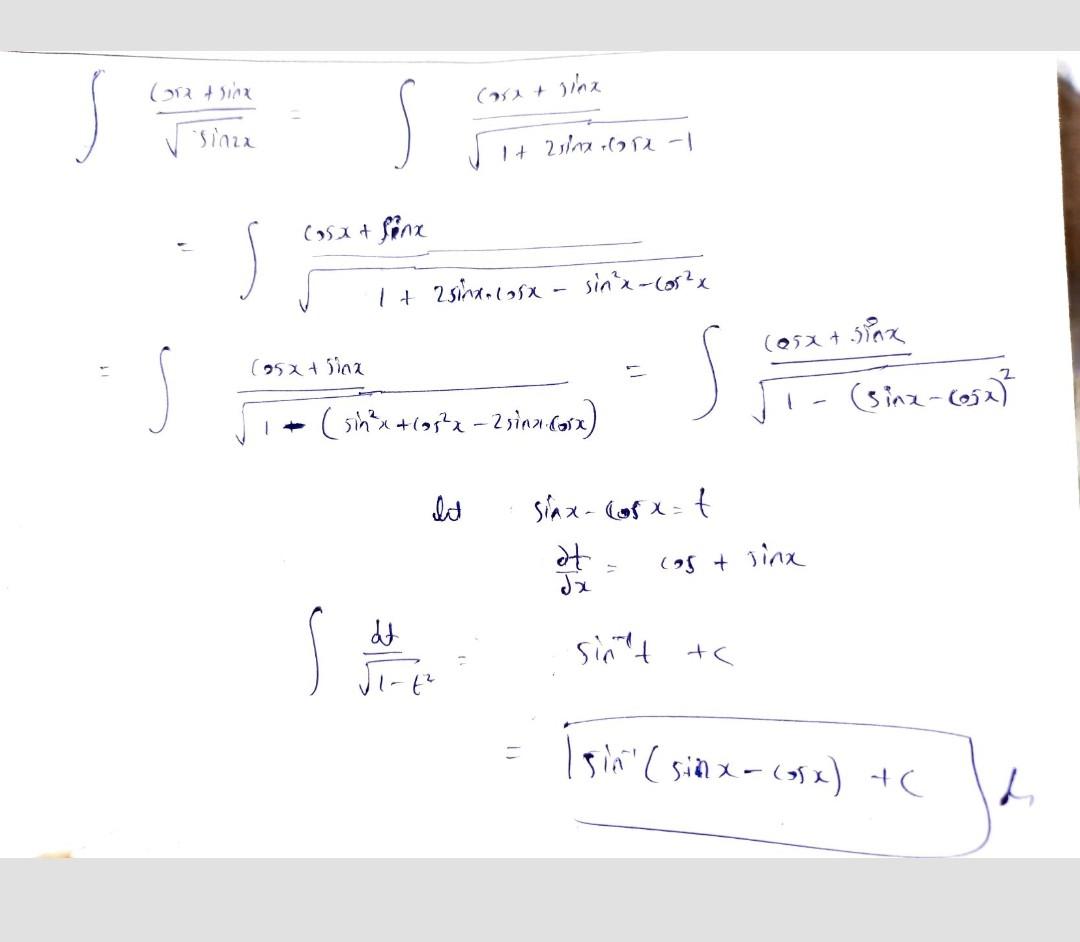 ∫ (cosx + sinx)/√(sin2x) = ∫ (cosx + sinx)/√(1 + 2sinx·cosx - 1)
= ∫ (cosx + sinx)/√(1 + 2sinx·cosx - sin²x - cos²x)
= ∫ (cosx + sinx)/√(1 - (sin²x + cos²x - 2sinx·cosx)) = ∫ (cosx + sinx)/√(1 - (sinx - cosx)²)
let sinx - cosx = t
dt/dx = cos + sinx
∫ dt/√(1 - t²) = sin⁻¹t + c
= sin⁻¹(sinx - cosx) + c